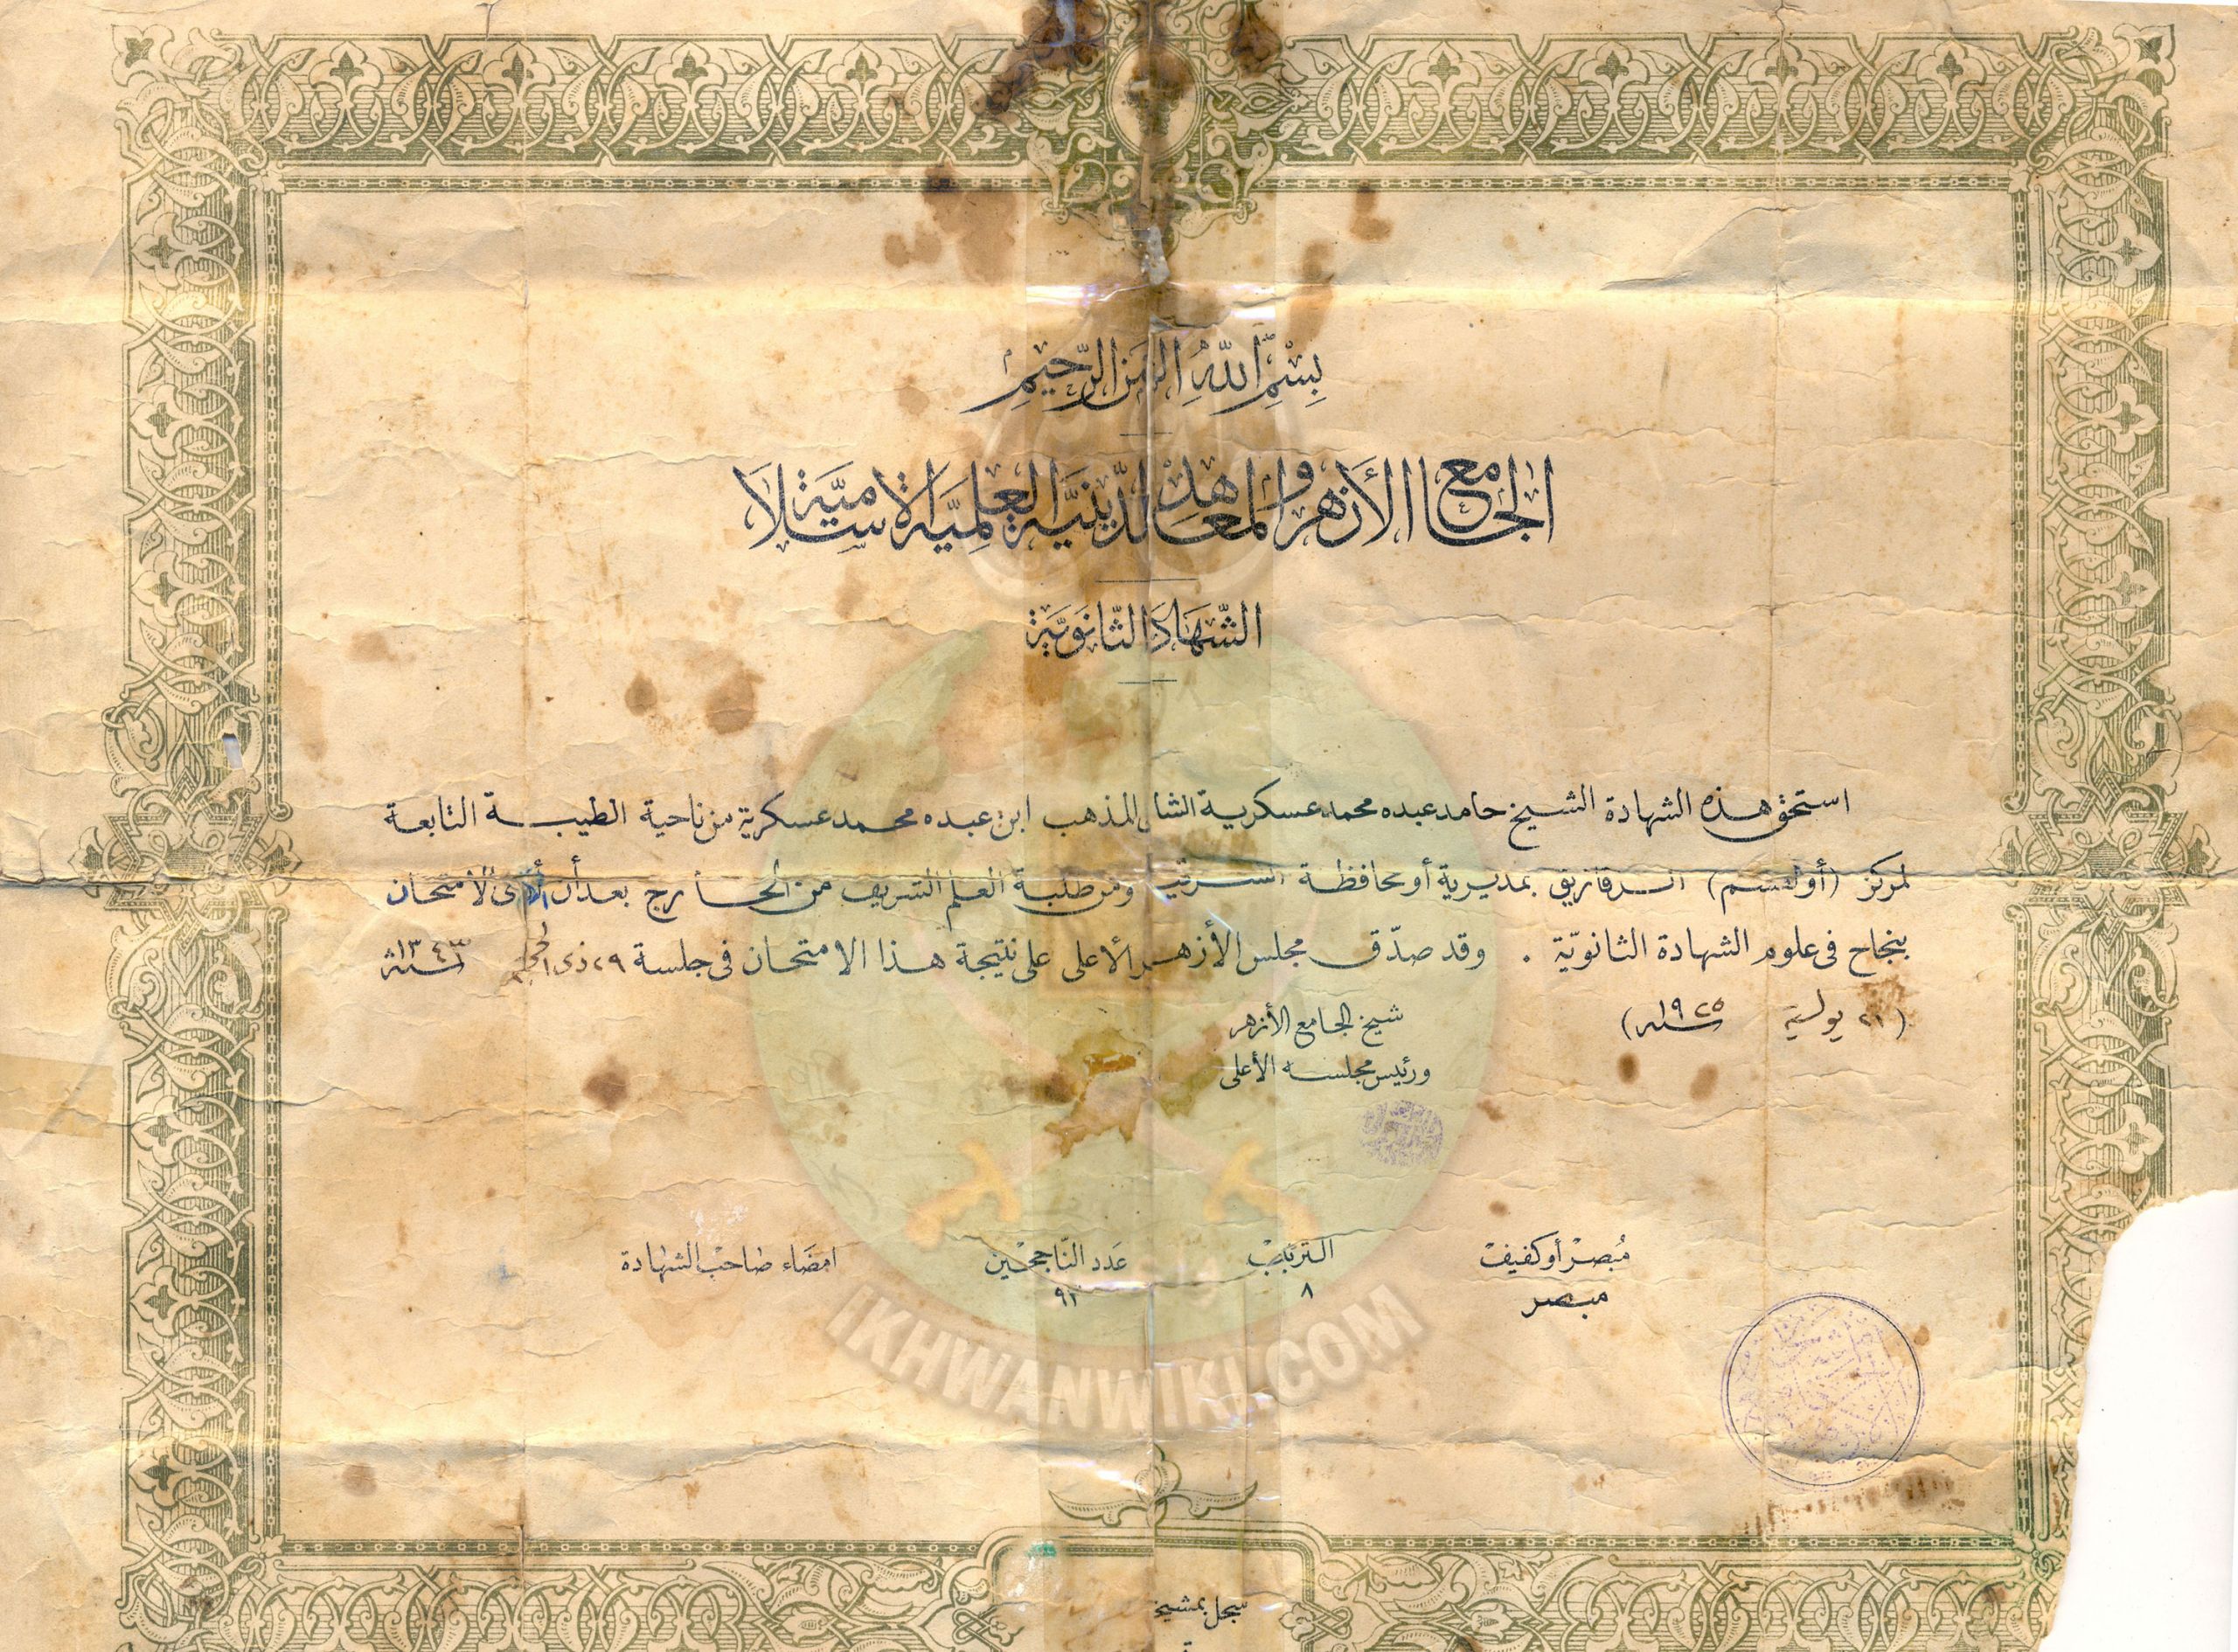 بِسْمِ اللهِ الرَّحْمَنِ الرَّحِيمِ
الجامع الأزهر والمعاهد الدّينيّة العلميّة الاسلاميّة
الشّهادة الثّانويّة
استحق هذه الشهادة الشيخ حامد عبده محمد عسكرية المذهب ابن عبده محمد عسكرية من ناحية الطيبة التابعة
لمركز (أو لقسم) الزقازيق بمديرية أو محافظة الشرقية ومن طلبة العلم الشريف من الخارج بعد أن أدى الامتحان
بنجاح فى علوم الشهادة الثانويّة . وقد صدّق مجلس الأزهر الأعلى على نتيجة هذا الامتحان فى جلسة ٢٩ ذى الحجة سنة ١٣٤٣
(٢١ يولية سنة ١٩٢٥)
شيخ الجامع الأزهر
ورئيس مجلسه الأعلى
مُبصر أو كفيف الترتيب عدد النّاجحين امضاء صاحب الشهادة
مبصر ٨
سجل بمشيخة
IKHWANWIKI.COM